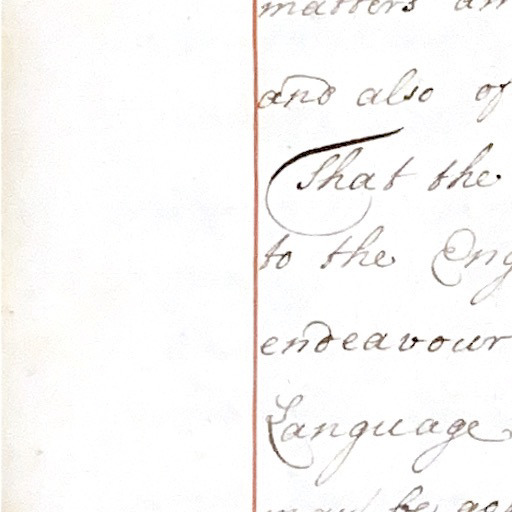 matters
and also of
That the
to the Eng
endeavour
Language
may be